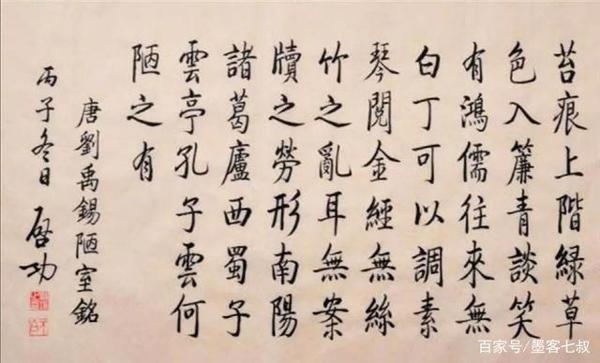 苔痕上階綠草
色入簾青談笑
有鴻儒往來無
白丁可以調素
琴閱金經無絲
竹之亂耳無案
牘之勞形南陽
諸葛廬西蜀子
雲亭孔子雲何
陋之有
唐劉禹錫陋室銘
丙子冬日 啓功
百家号/墨客七叔